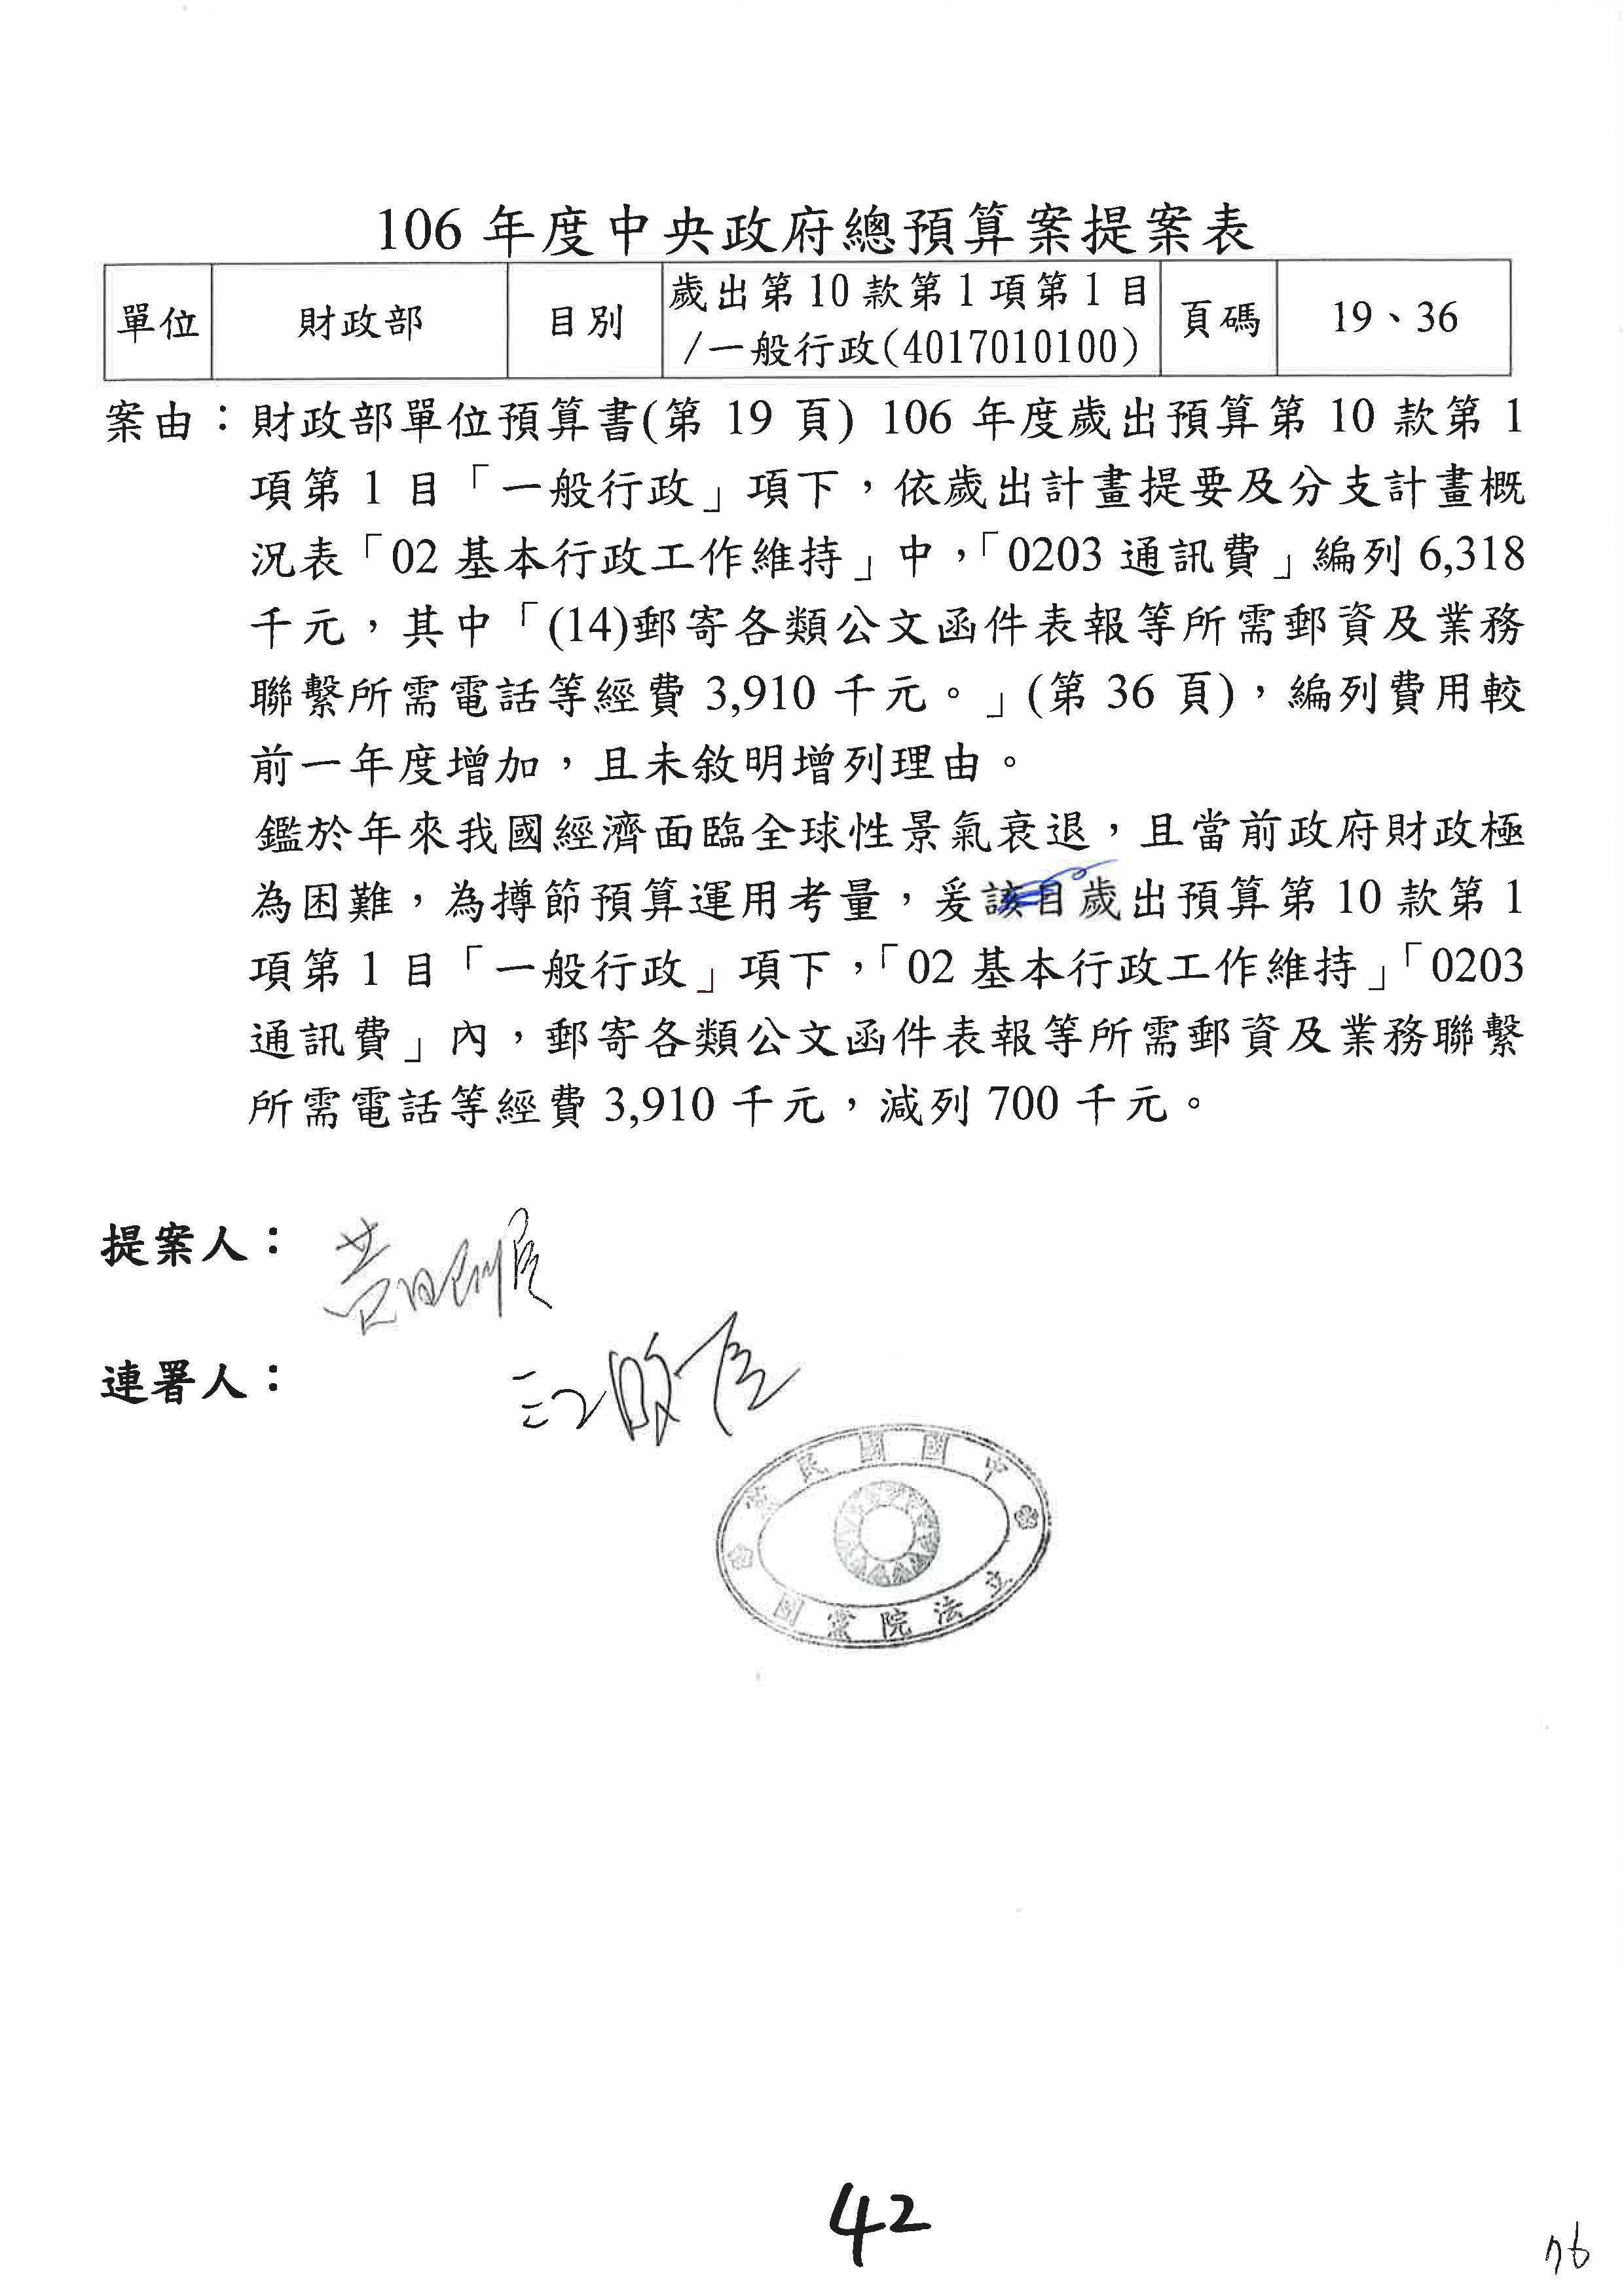 106 年度中央政府總預算案提案表
單位 財政部 目別 歲出第10款第1項第1目/一般行政(4017010100) 頁碼 19、36
案由：財政部單位預算書(第 19 頁) 106 年度歲出預算第 10 款第 1
項第 1 目「一般行政」項下，依歲出計畫提要及分支計畫概
況表「02 基本行政工作維持」中，「0203 通訊費」編列 6,318
千元，其中「(14)郵寄各類公文函件表報等所需郵資及業務
聯繫所需電話等經費 3,910 千元。」(第 36 頁)，編列費用較
前一年度增加，且未敘明增列理由。
鑑於年來我國經濟面臨全球性景氣衰退，且當前政府財政極
為困難，為撙節預算運用考量，爰該目歲出預算第 10 款第 1
項第 1 目「一般行政」項下，「02 基本行政工作維持」「0203
通訊費」內，郵寄各類公文函件表報等所需郵資及業務聯繫
所需電話等經費 3,910 千元，減列 700 千元。
提案人：
連署人：
中國國民黨
立法院黨團
42
76